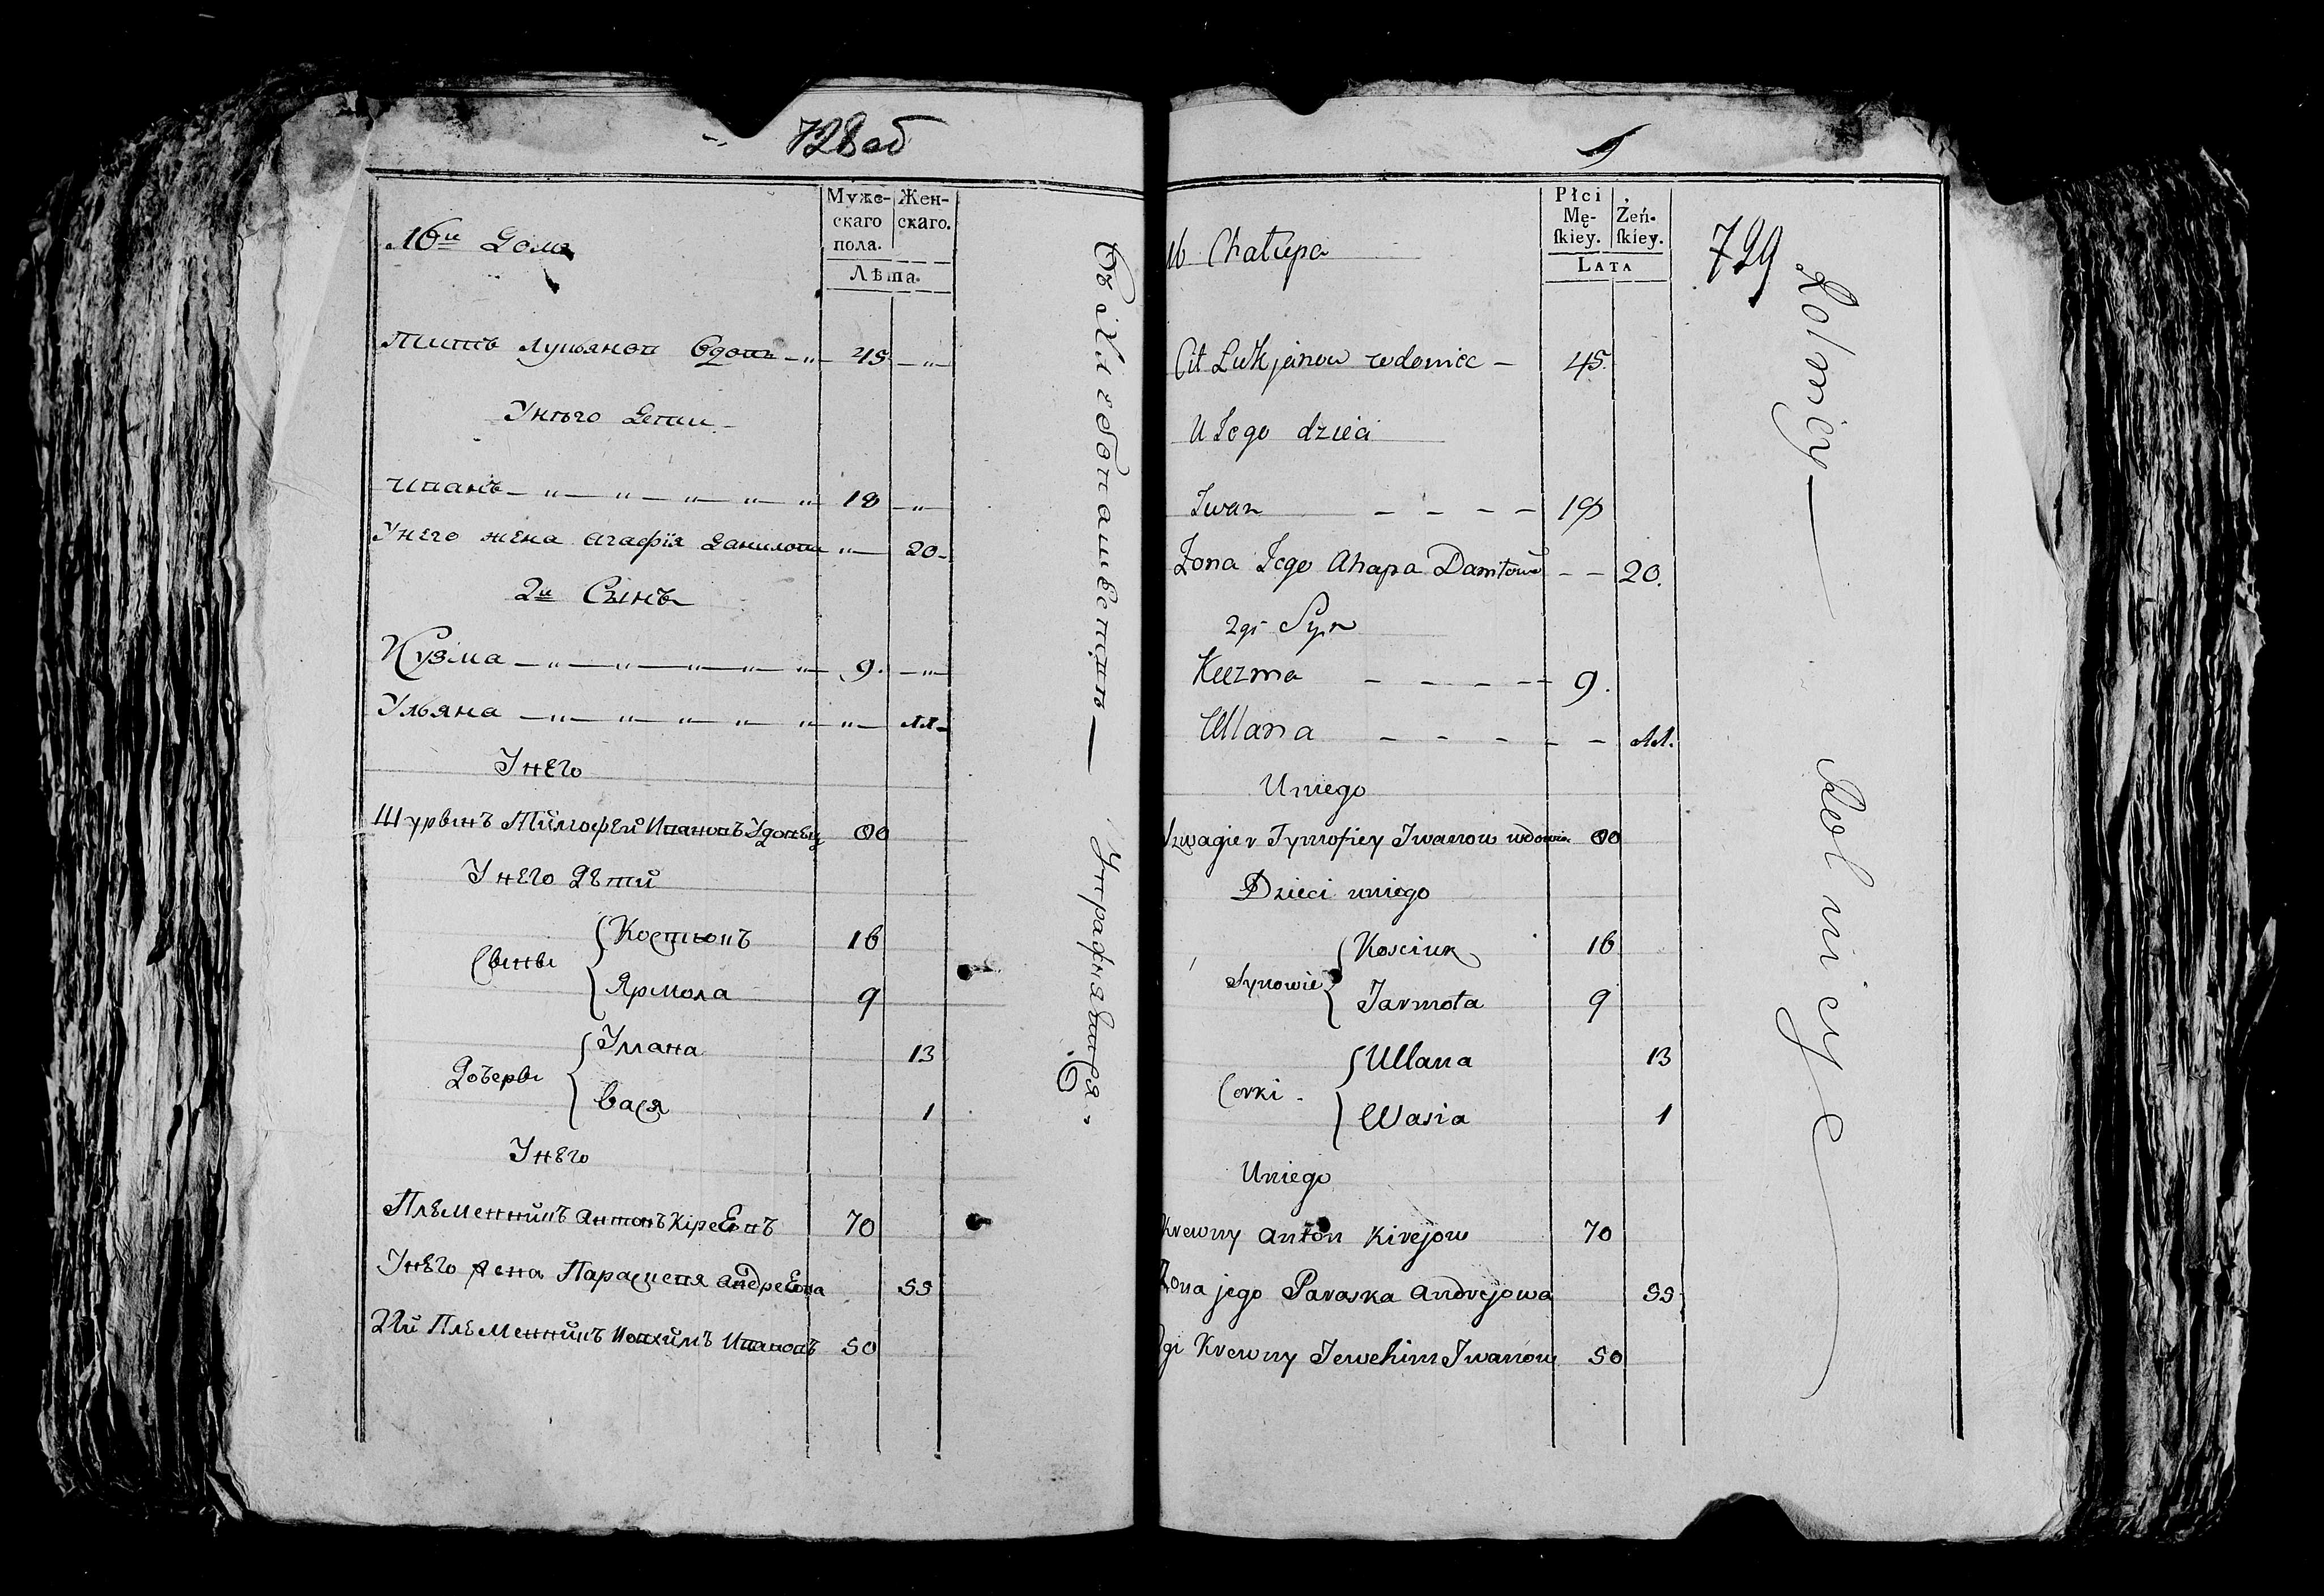 728об
Муже-
скаго
пола.
Жен-
скаго.
Лѣта.
16й Домъ
Титъ Лукьянов вдовъ 45
У него дети
Иванъ 18
У него жена Агафія Данилова 20
2й Сынъ
Кузма 9.
Ульяна 11
У него
Шуринъ Тимофей Ивановъ Удовец 60
У него Дѣти
Сыны
Костюкъ 16
Ярмола 9
Дочеры
Улана 13
Вася 1
У него
Племенникъ Антонъ Кіреевъ 70
У него жена Параскева Андреева 55
2й Племенникъ Иовхимъ Ивановъ 50
Въ Хлебопашествѣ — Упражнявшися.
729
Płci
Mę-
skiey.
Żeń-
skiey.
LATA
16 Chałupa
Cit Łukjanow wdowiec 45.
U Jego dzieci
Jwan 18
Żona Jego Ahapa Daniłowa 20.
2gi Syn
Kuzma 9.
Ullana 11.
U niego
Szwagier Tymofiey Jwanow wdowiec 60
Dzieci u niego
Synowie
Kosciuk 16
Jarmoła 9
Corki
Ullana 13
Wasia 1
U niego
Krewny Anton Kirejow 70
Żona jego Paraska Andrejowa 55
2gi Krewny Jewchim Jwanow 50
Rolnicy — Rolnicye